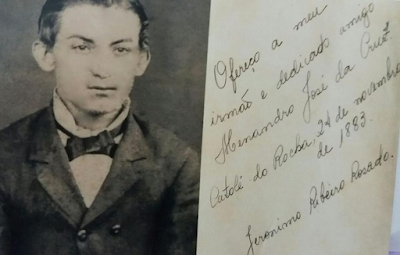 Ofereço a meu
irmão e dedicado amigo
Menandro José da Cruz.
Catolé do Rocha 24 de novembro
de 1883.
Jeronimo Ribeiro Rosado.